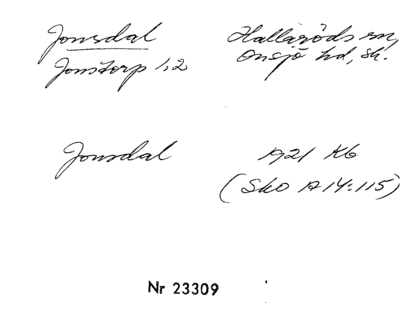 Jonsdal Hallaröds sn,
Jonstorp 1,2 Onsjö hd, Sk.
Jonsdal 1921 Kb
(Sko A 14:115)
Nr 23309